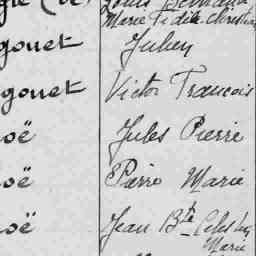 Louis Bernard
Marie Fidèle Christian
gouet Julien
gouet Victor François
oë Jules Pierre
oë Pierre Marie
oë Jean Bte
Marie